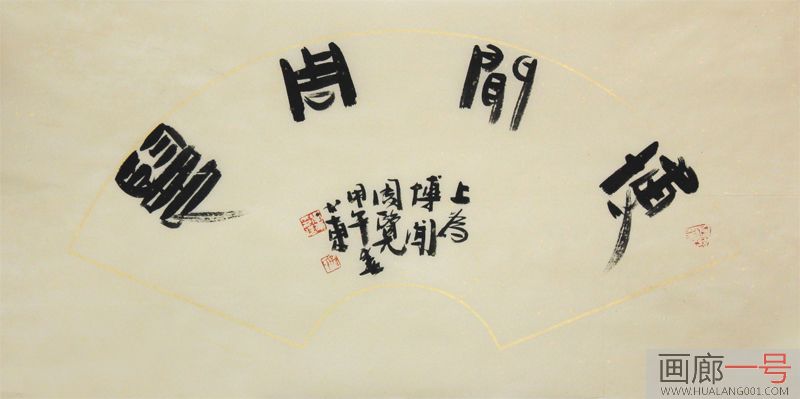 博聞周覽
上為
博聞
周覽
甲午春
画廊一号
WWW.HUALANG001.COM